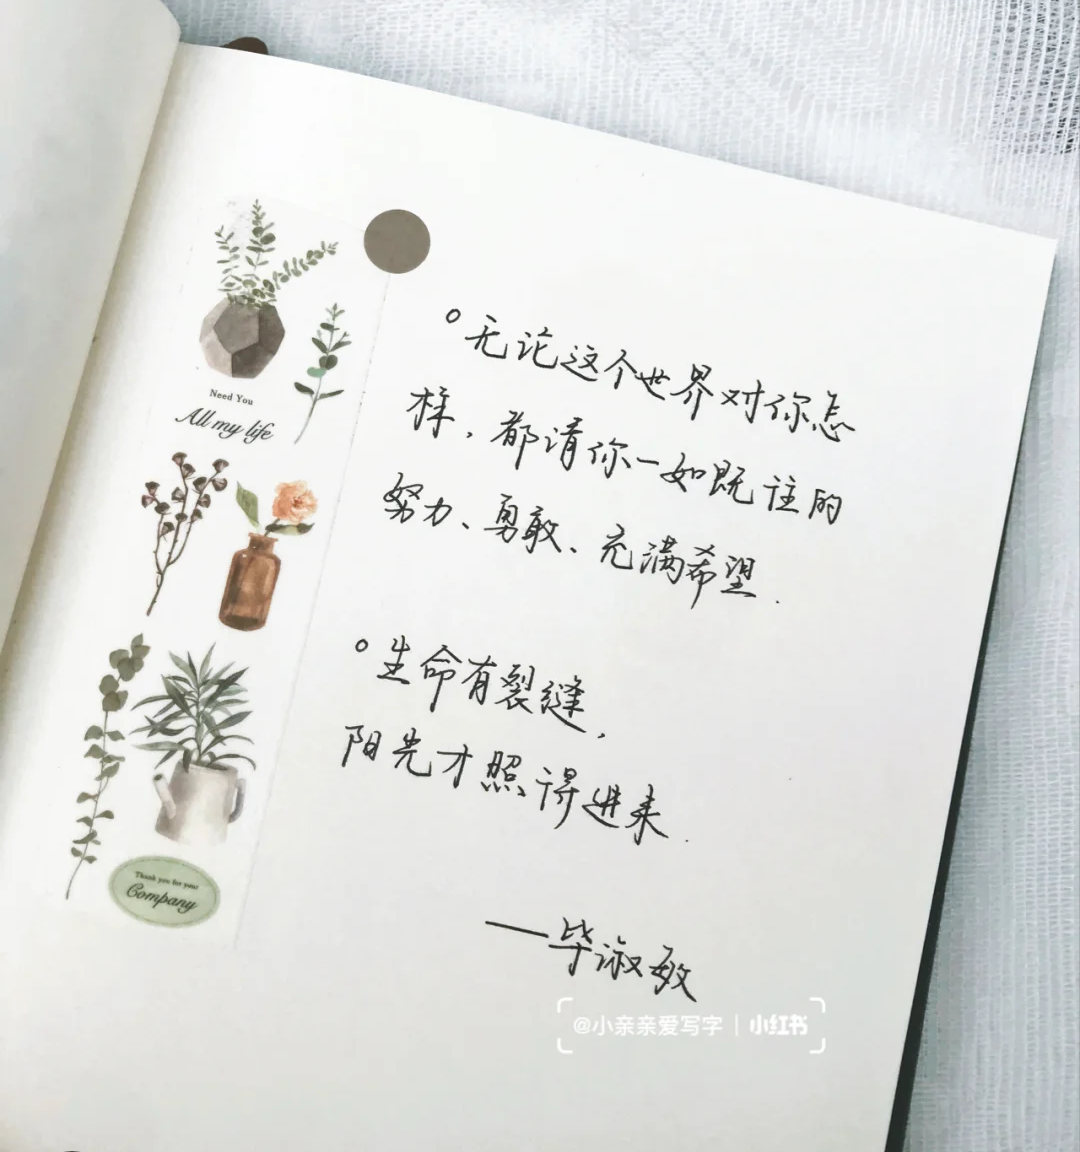 Need You
All my life
Thank you for your
Company
无论这个世界对你怎
样，都请你一如既往的
努力、勇敢、充满希望.
生命有裂缝，
阳光才照得进来.
——毕淑敏
@小亲亲爱写字 | 小红书